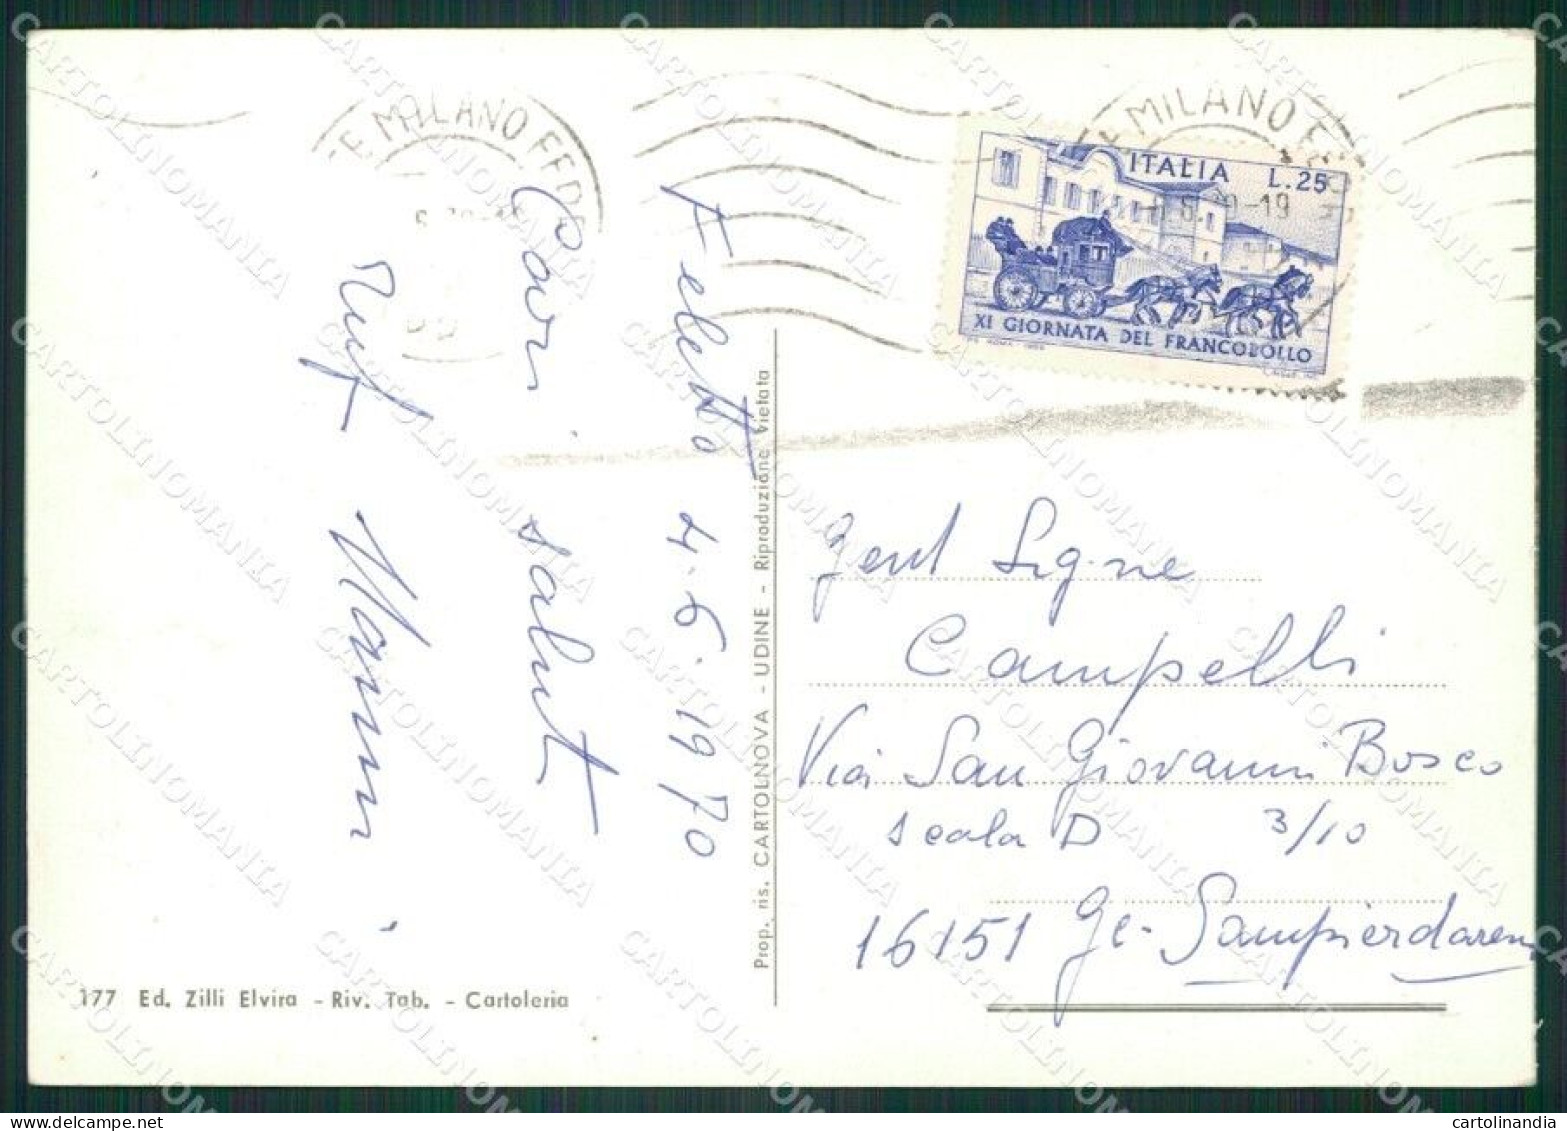 E MILANO FERR
E MILANO FE
6.70-19
ITALIA L.25
XI GIORNATA DEL FRANCOBOLLO
Feletto 4.6.1970
Cari saluti
Prop. ris. CARTOLNOVA - UDINE - Riproduzione vietata
Gent Sig.ne
Campelli
Via San Giovanni Bosco
scala D 3/10
16151 Ge- Sampierdarena
177 Ed. Zilli Elvira - Riv. Tab. - Cartoleria
CARTOLINOMANIA
cartolinandia